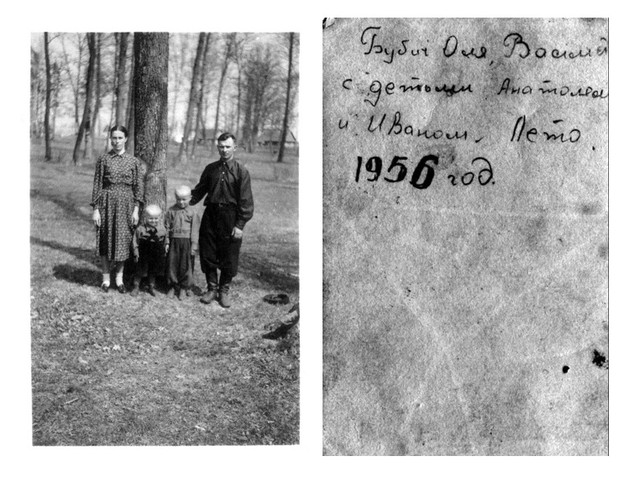 Бубич Оля, Василий
с детьми Анатолем
и Иваном. Лето
1956 год.